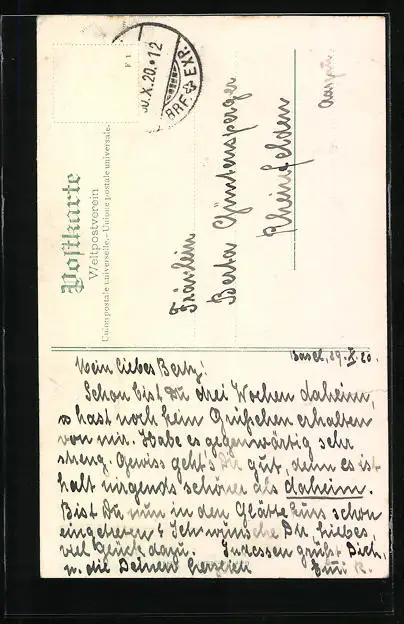 Postkarte
Weltpostverein
Union postale universelle. - Unione postale universale.
X.20.-12
BRF. EXP.
Fräulein
Berta Güntensperger
Rheinfelden
Aargau.
Basel, 29. X. 20.
Mein liebes Berty!
Schon bist Du drei Wochen daheim,
hast noch kein Grüsschen erhalten
von mir. Habe es gegenwärtig sehr
streng. Gewiss geht's Dir gut, denn es ist
halt nirgends schöner als daheim.
Bist Du nun in den Glättekurs schon
eingetreten? Ich wünsche Dir, liebes,
viel Glück dazu. Indessen grüsst Dich,
u. die Deinen herzlich